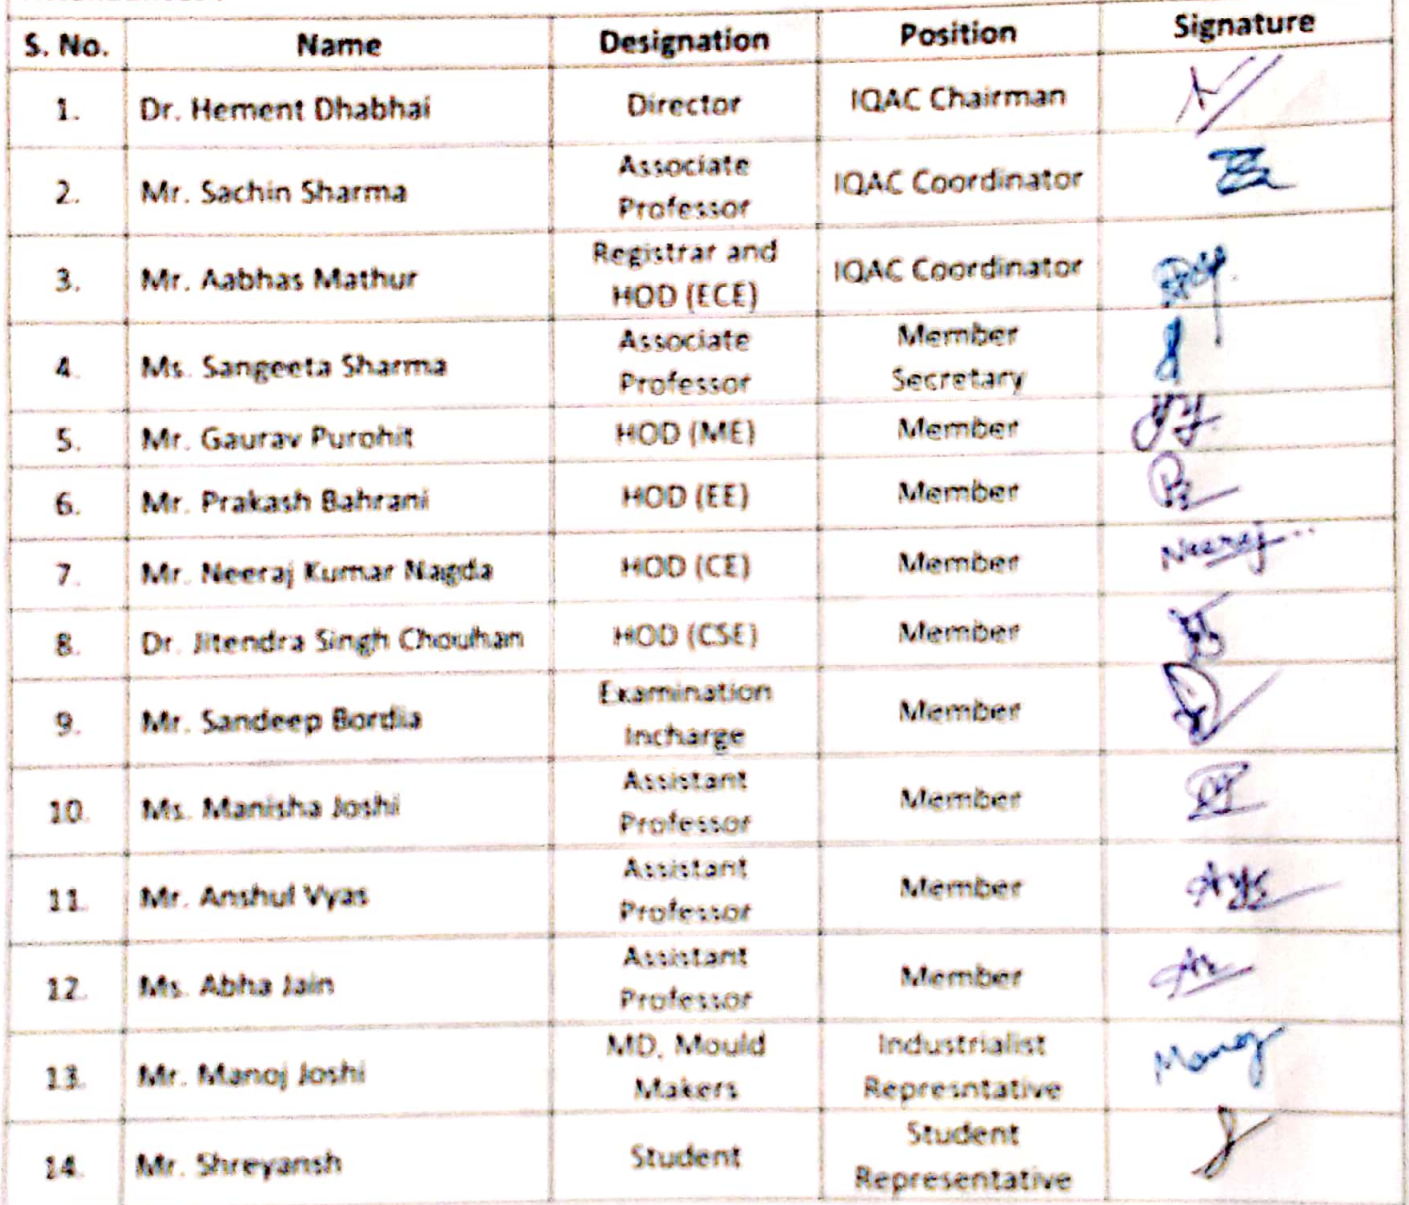 S. No. Name Designation Position Signature
1. Dr. Hement Dhabhai Director IQAC Chairman
2. Mr. Sachin Sharma Associate Professor IQAC Coordinator
3. Mr. Aabhas Mathur Registrar and HOD (ECE) IQAC Coordinator
4. Ms. Sangeeta Sharma Associate Professor Member Secretary
5. Mr. Gaurav Purohit HOD (ME) Member
6. Mr. Prakash Bahrani HOD (EE) Member
7. Mr. Neeraj Kumar Nagda HOD (CE) Member Neeraj
8. Dr. Jitendra Singh Chouhan HOD (CSE) Member
9. Mr. Sandeep Bordia Examination Incharge Member
10. Ms. Manisha Joshi Assistant Professor Member
11. Mr. Anshul Vyas Assistant Professor Member
12. Ms. Abha Jain Assistant Professor Member
13. Mr. Manoj Joshi MD, Mould Makers Industrialist Represntative Manoj
14. Mr. Shreyansh Student Student Representative